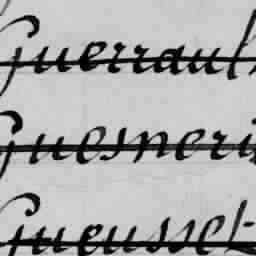 Guerraul
Guesneri
Gueusset